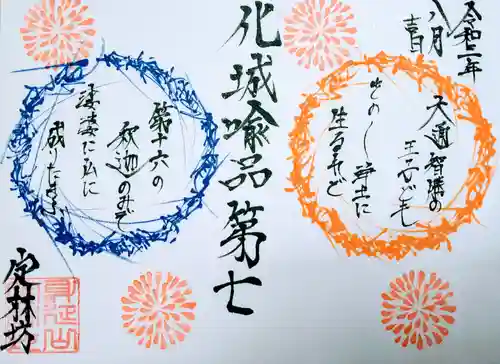 令和二年
八月吉日
大通智勝の
王子ども
そのし浄土に
生るれど
化城喩品第七
第十六の
釈迦のみぞ
娑婆に仏に
成りたまふ
定林坊
身延山